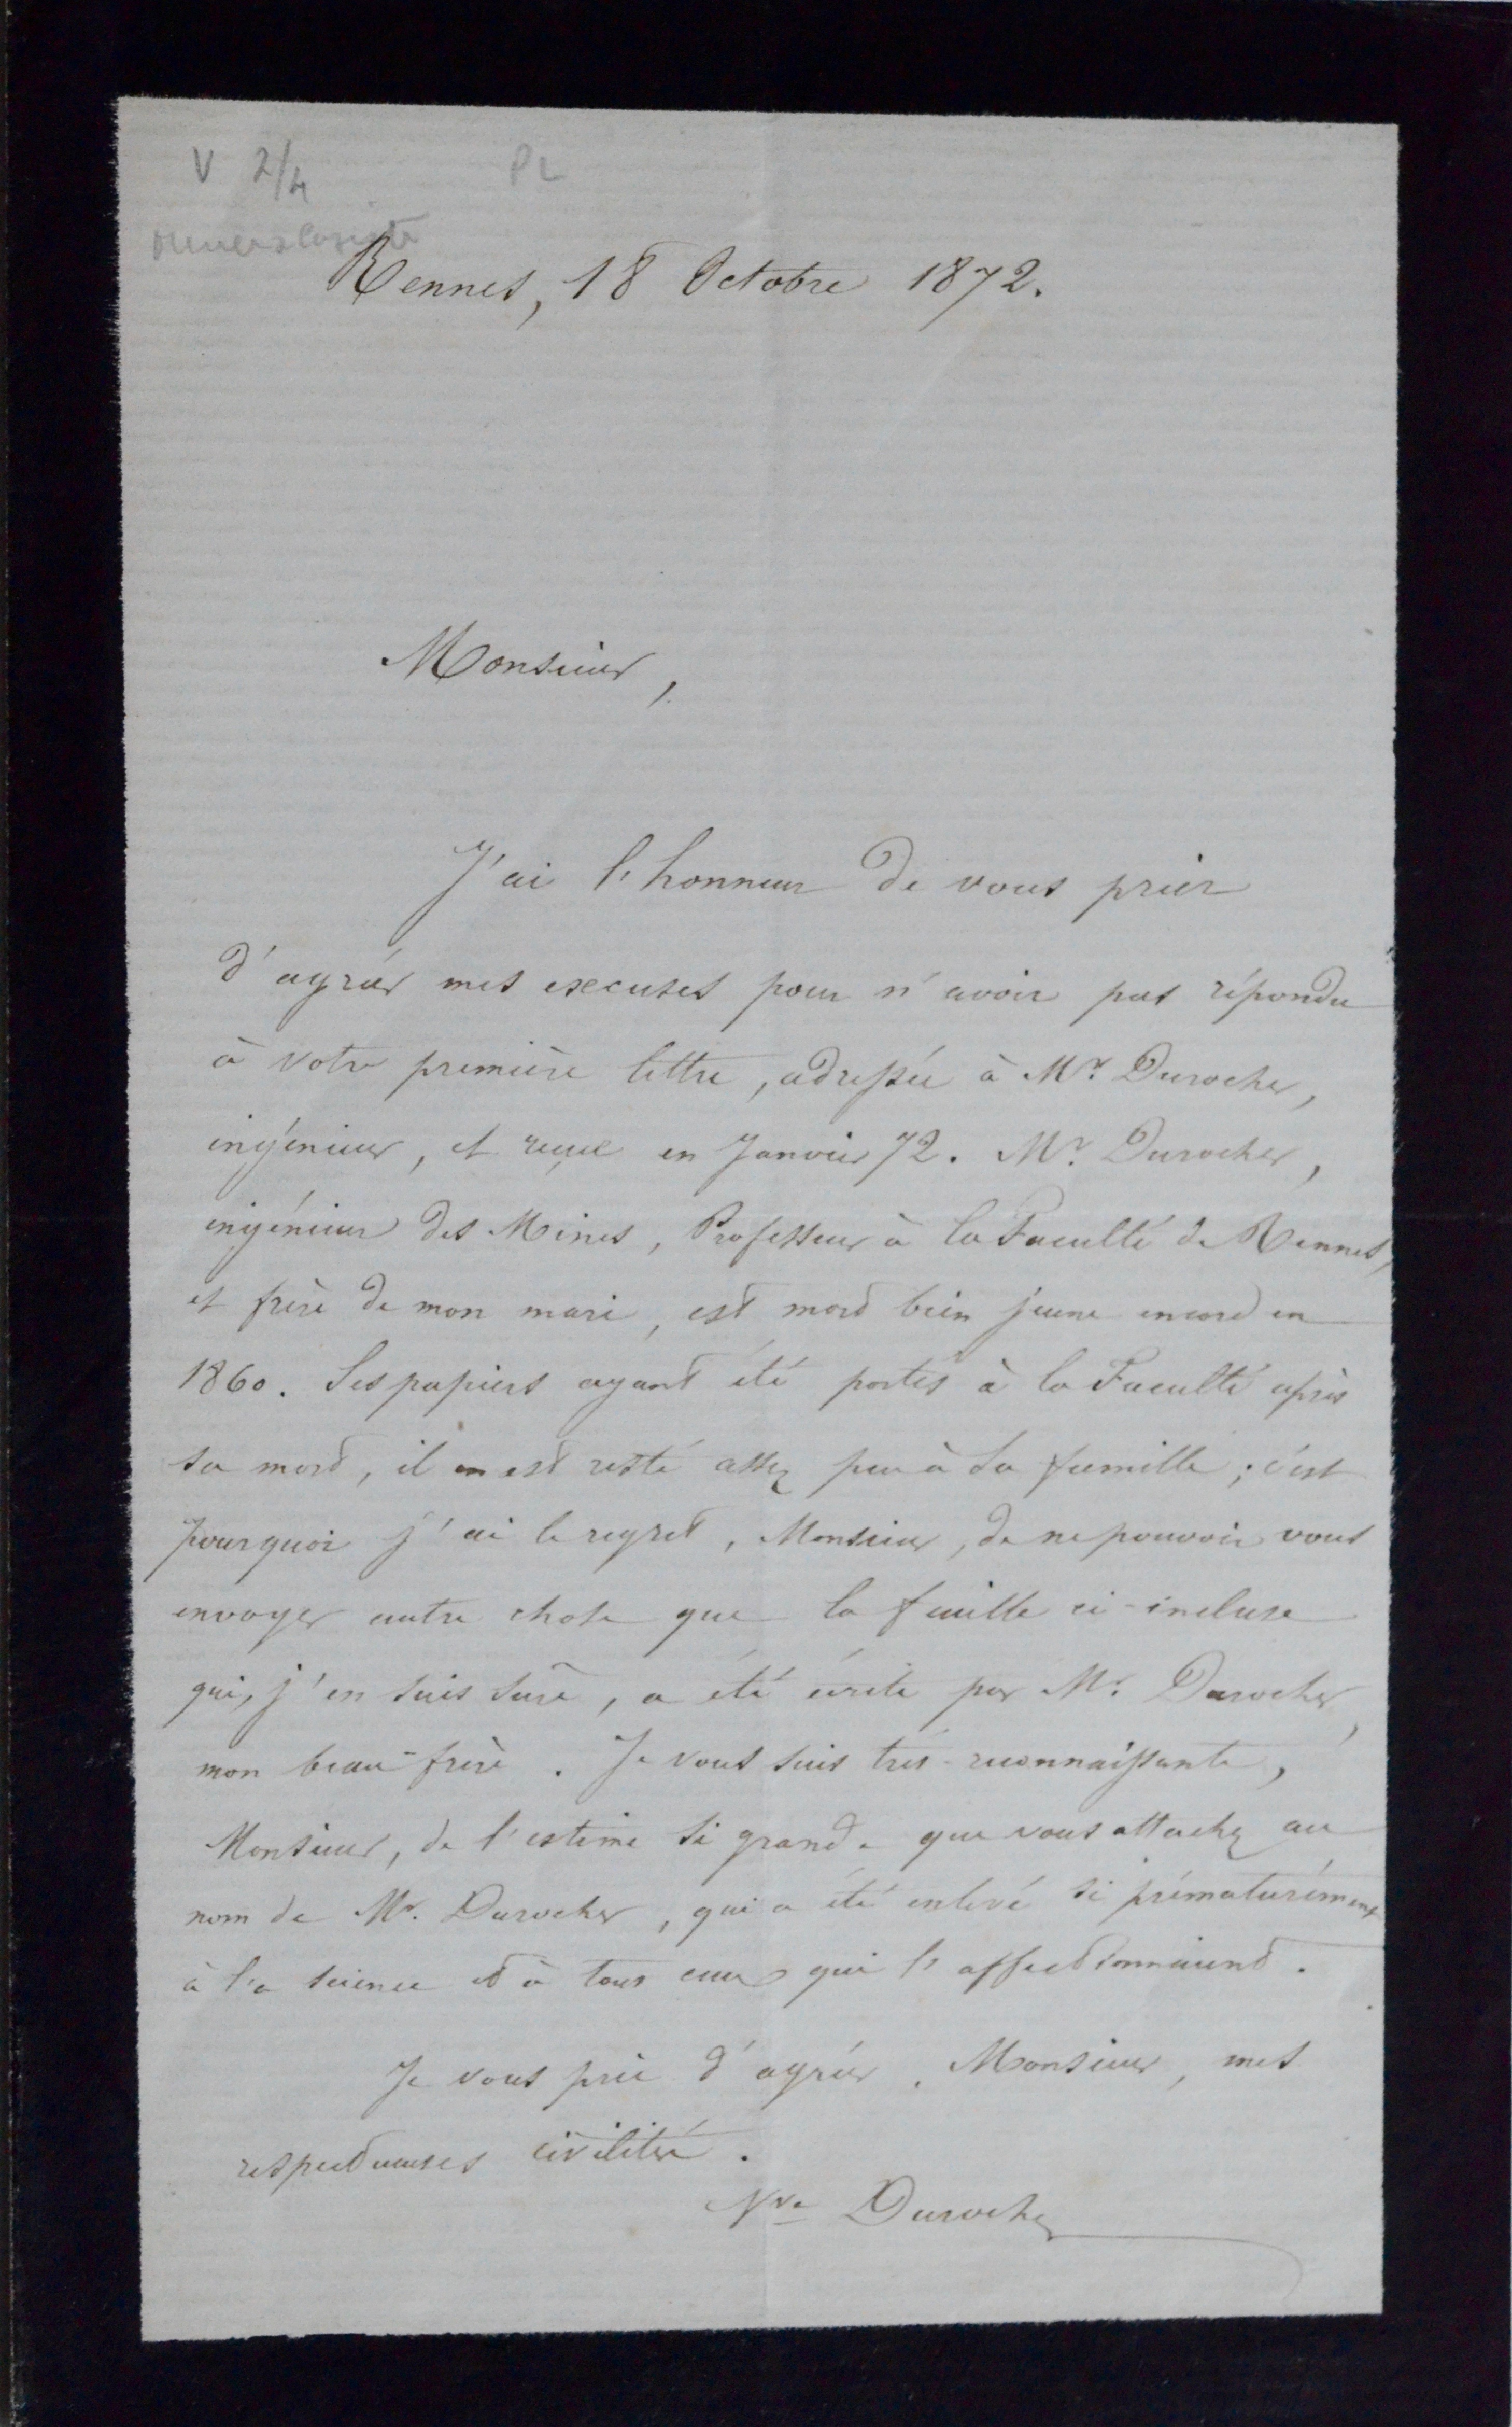 V 2/4 PL
Rennes, 18 Octobre 1872.
Monsieur,
J'ai l'honneur de vous prier
d'agréer mes excuses pour n'avoir pas répondu
à votre première lettre, adressée à Mr. Durocher,
ingénieur, et reçue en Janvier 72. Mr. Durocher,
ingénieur des Mines, Professeur à la Faculté de Rennes,
et frère de mon mari, est mort bien jeune encore en
1860. Ses papiers ayant été portés à la Faculté après
sa mort, il en est resté assez peu à sa famille ; c'est
pourquoi j'ai le regret, Monsieur, de ne pouvoir vous
envoyer autre chose que la feuille ci-incluse
qui, j'en suis sûre, a été écrite par Mr. Durocher,
mon beau-frère. Je vous suis très-reconnaissante,
Monsieur, de l'estime si grande que vous attachez au
nom de Mr. Durocher, qui a été enlevé si prématurément
à la science et à tous ceux qui l'affectionnaient.
Je vous prie d'agréer, Monsieur, mes
respectueuses civilités.
Vve Durocher